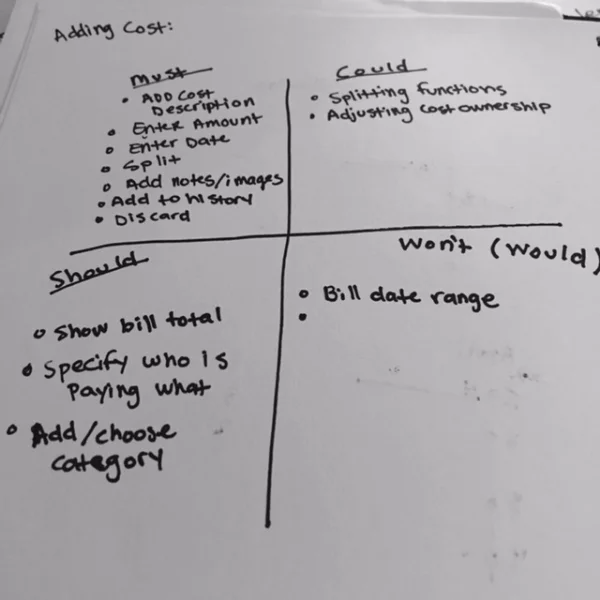 Adding Cost:
Must
• ADD COST
DESCRIPTION
• Enter Amount
• Enter Date
• Split
• Add notes/images
• Add to history
• Discard
Could
• Splitting functions
• Adjusting cost ownership
Should
• Show bill total
• Specify who is
paying what
• Add/choose
category
Won't (Would)
• Bill date range
•